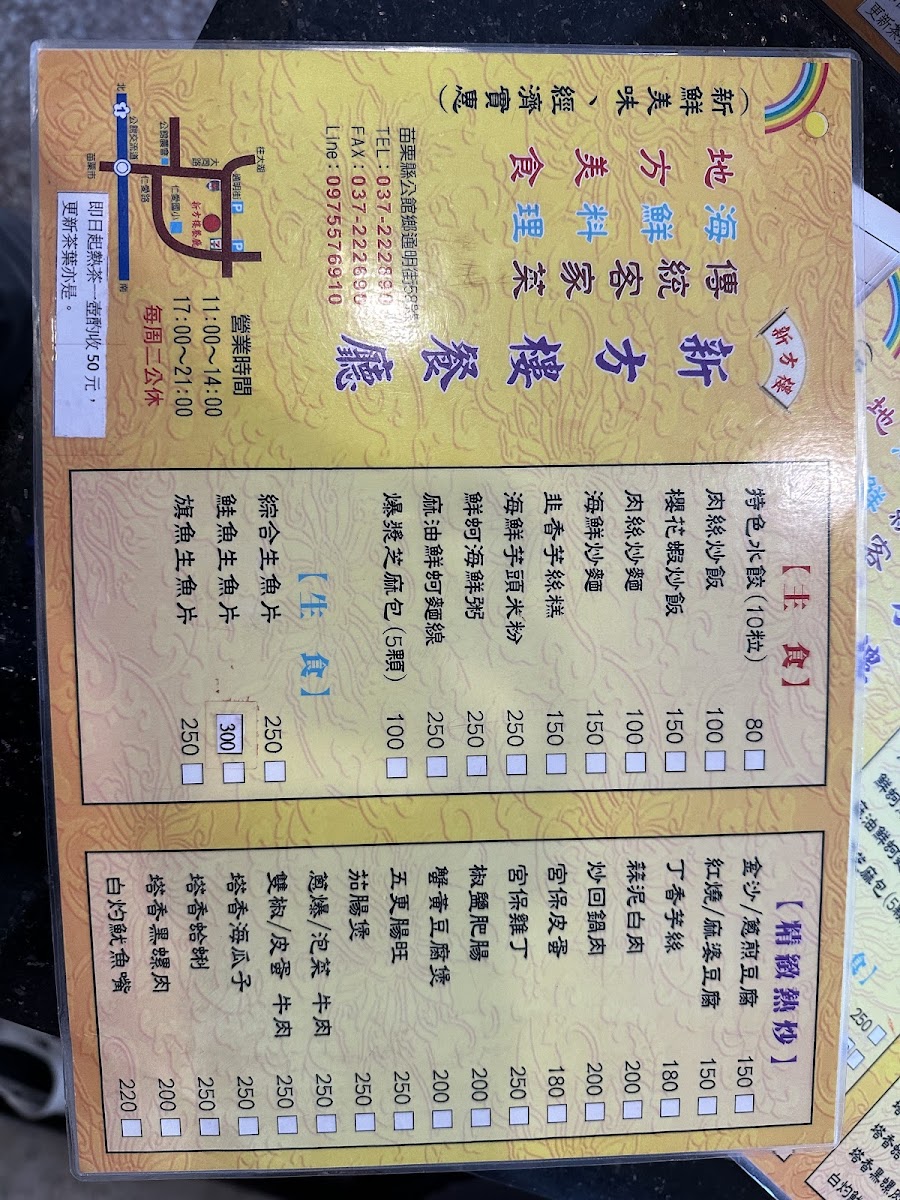 新方樓
地方美食
海鮮料理
傳統客家菜
(新鮮美味、經濟實惠)
新方樓餐廳
苗栗縣公館鄉通明街58號
TEL:037-222890
FAX:037-222690
Line:0975576910
營業時間
11:00~14:00
17:00~21:00
每周二公休
即日起熱茶一壺酌收 50 元,
更新茶葉亦是。
北
公館交流道
苗栗市
公館農會
仁愛路
仁愛國小
通明街
往大湖
新方樓餐廳
南
【主 食】
特色水餃(10粒) 80
肉絲炒飯 100
櫻花蝦炒飯 150
肉絲炒麵 100
海鮮炒麵 150
韭香芋絲糕 150
海鮮芋頭米粉 250
鮮蚵海鮮粥 250
麻油鮮蚵麵線 250
爆漿芝麻包(5顆) 100
【生 食】
綜合生魚片 250
鮭魚生魚片 300
旗魚生魚片 250
【精緻熱炒】
金沙/蔥煎豆腐 150
紅燒/麻婆豆腐 150
丁香芋絲 180
蒜泥白肉 200
炒回鍋肉 200
宮保皮蛋 180
宮保雞丁 250
椒鹽肥腸 200
蟹黃豆腐煲 200
五更腸旺 250
茄腸煲 250
蔥爆/泡菜 牛肉 250
雙椒/皮蛋 牛肉 250
塔香海瓜子 250
塔香蛤蜊 250
塔香黑螺肉 200
白灼魷魚嘴 220